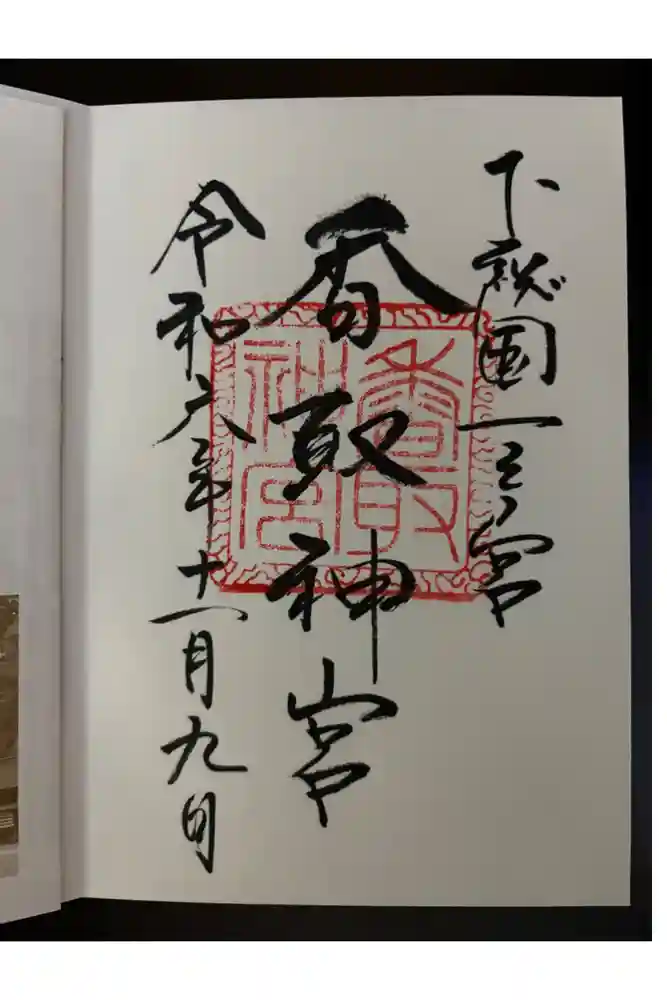 下総国一之宮
香取神宮
令和六年十一月九日
香取神宮